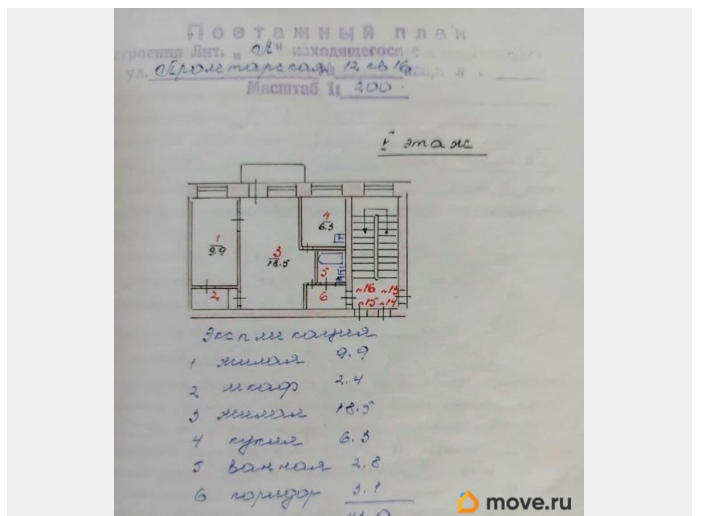 Поэтажный план
строения Лит. „А" находящегося
ул. Пролетарская 12 кв 16
Масштаб 1: 200
этаж
1
9.9
3
18.5
4
6.3
5
2
6
16 13
15 14
Экспликация
1 жилая 9.9
2 шкаф 2.4
3 жилая 18.5
4 кухня 6.3
5 ванная 2.8
6 коридор 3.1
move.ru